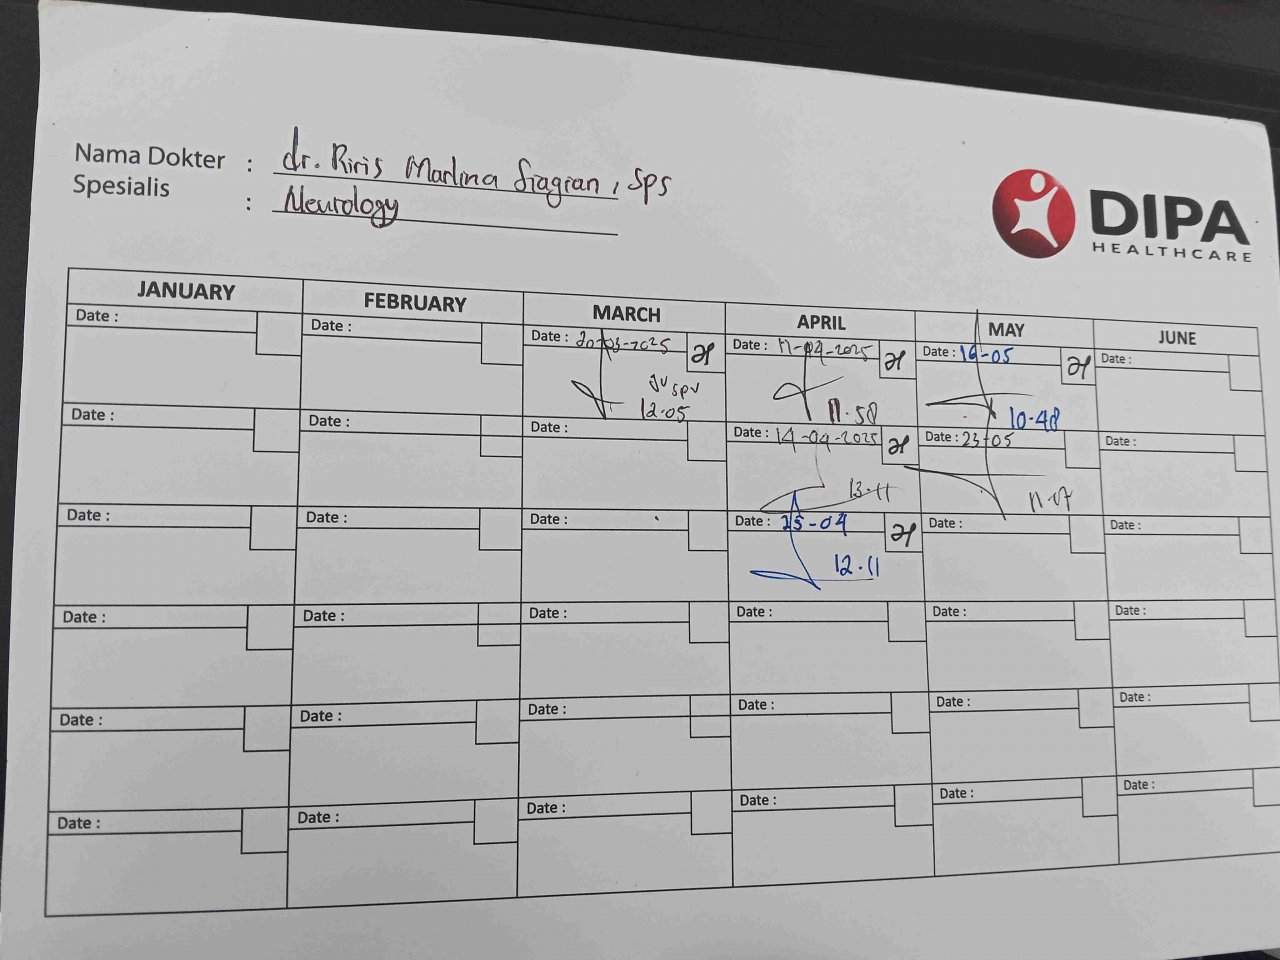 Nama Dokter : dr. Riris Marlina Siagian, SpS
Spesialis : Neurology
DIPA
HEALTHCARE
JANUARY FEBRUARY MARCH APRIL MAY JUNE
Date : Date : Date : 20-03-2025 Date : 11-04-2025 Date : 16-05 Date :
JV SPV
12.05 11.58 10.48
Date : Date : Date : Date : 14-04-2025 Date : 23-05 Date :
13.11 11.07
Date : Date : Date : Date : 25-04 Date : Date :
12.11
Date : Date : Date : Date : Date : Date :
Date : Date : Date : Date : Date : Date :
Date : Date : Date : Date : Date : Date :